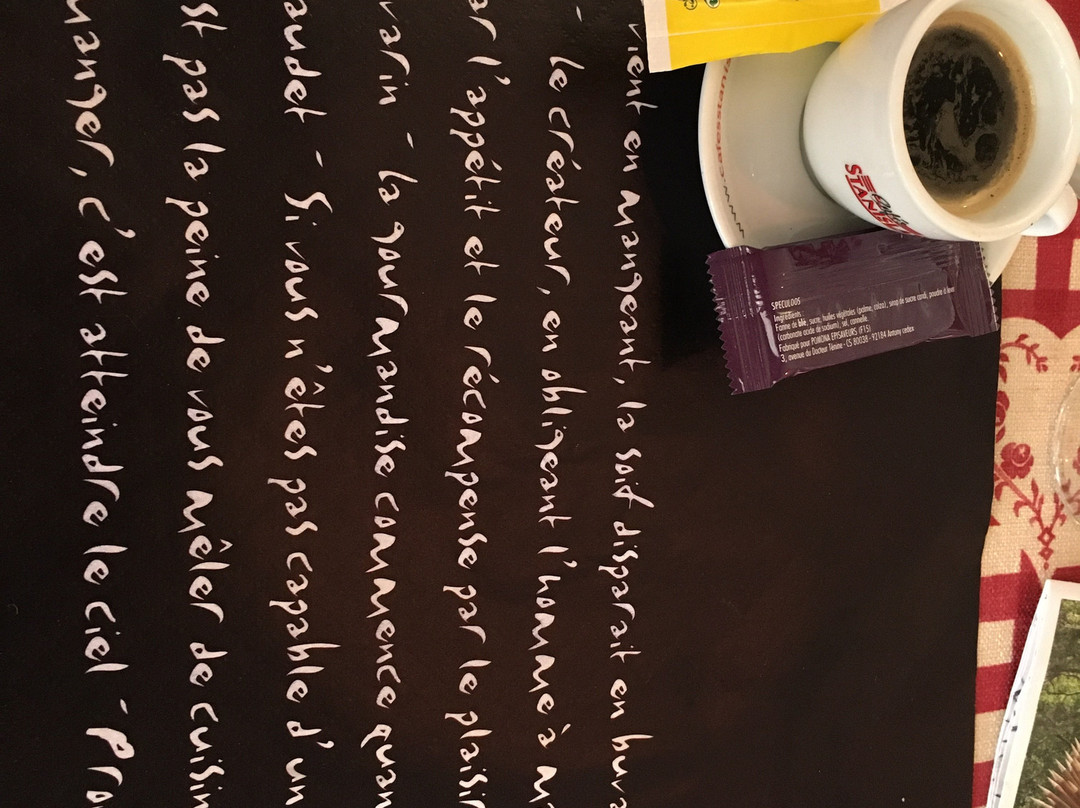 vient en mangeant, la soif disparait en buva
- Le créateur, en obligeant l'homme à m
ar l'appétit et le récompense par le plaisir
varin - La gourmandise commence quan
audet - Si vous n'êtes pas capable d'un
st pas la peine de vous mêler de cuisin
manger, c'est atteindre le ciel - Pro
SPECULOOS
Ingrédients
Farine de blé, sucre, huiles végétales (palme, colza), sirop de sucre candi, poudre à lever
(carbonate acide de sodium), sel, cannelle.
Fabriqué pour POMONA EPISAVEURS (F15)
3, avenue du Docteur Ténine - CS 80038 - 92184 Antony cedex
Cafés